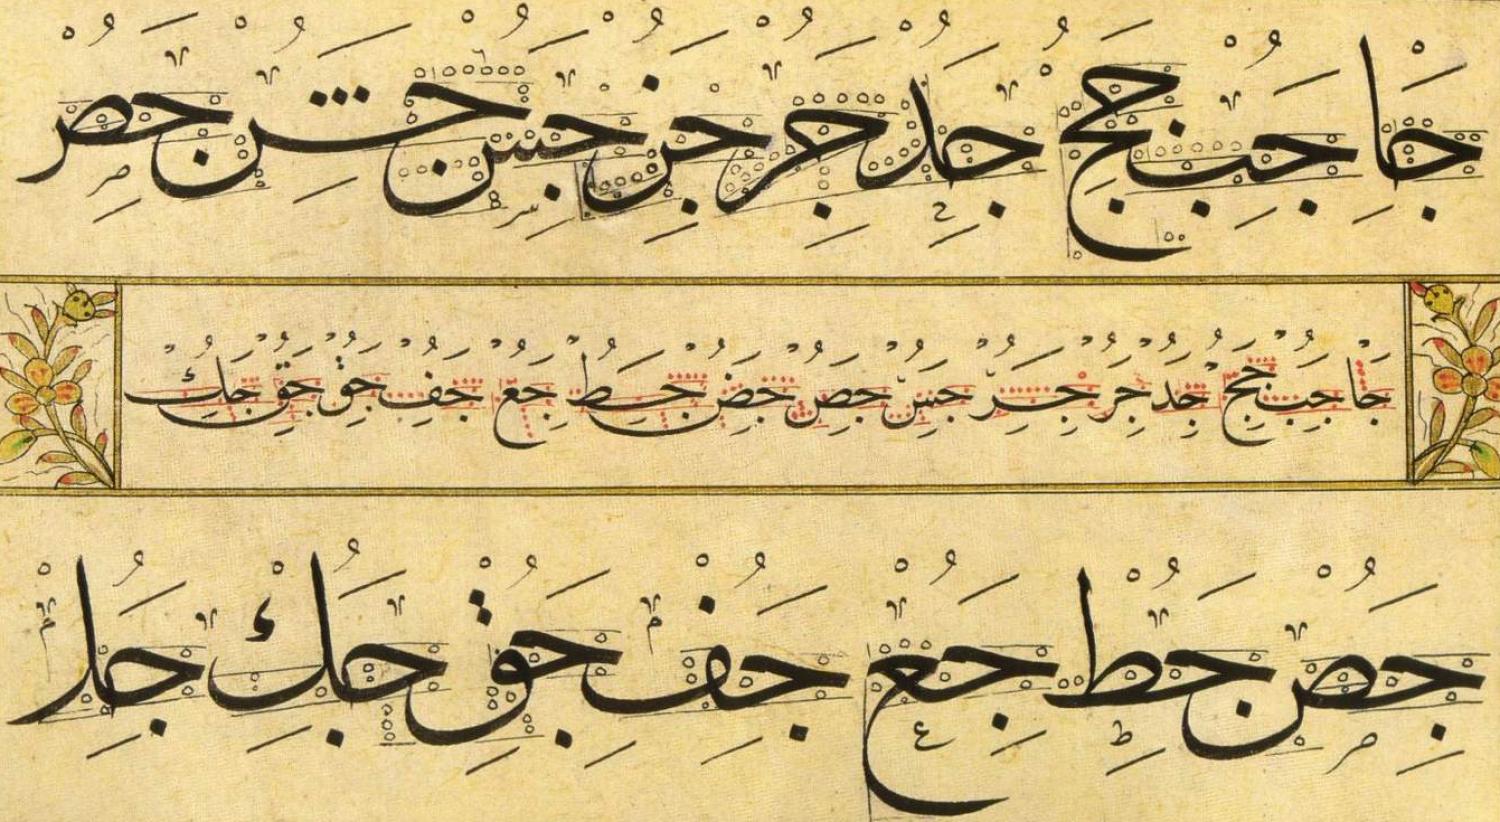 جا جب جح جد جر جز جس جش جص
جا جب جح جد جر جس جص جض جط جع جف جق جك
جص جط جع جف جق جك جل